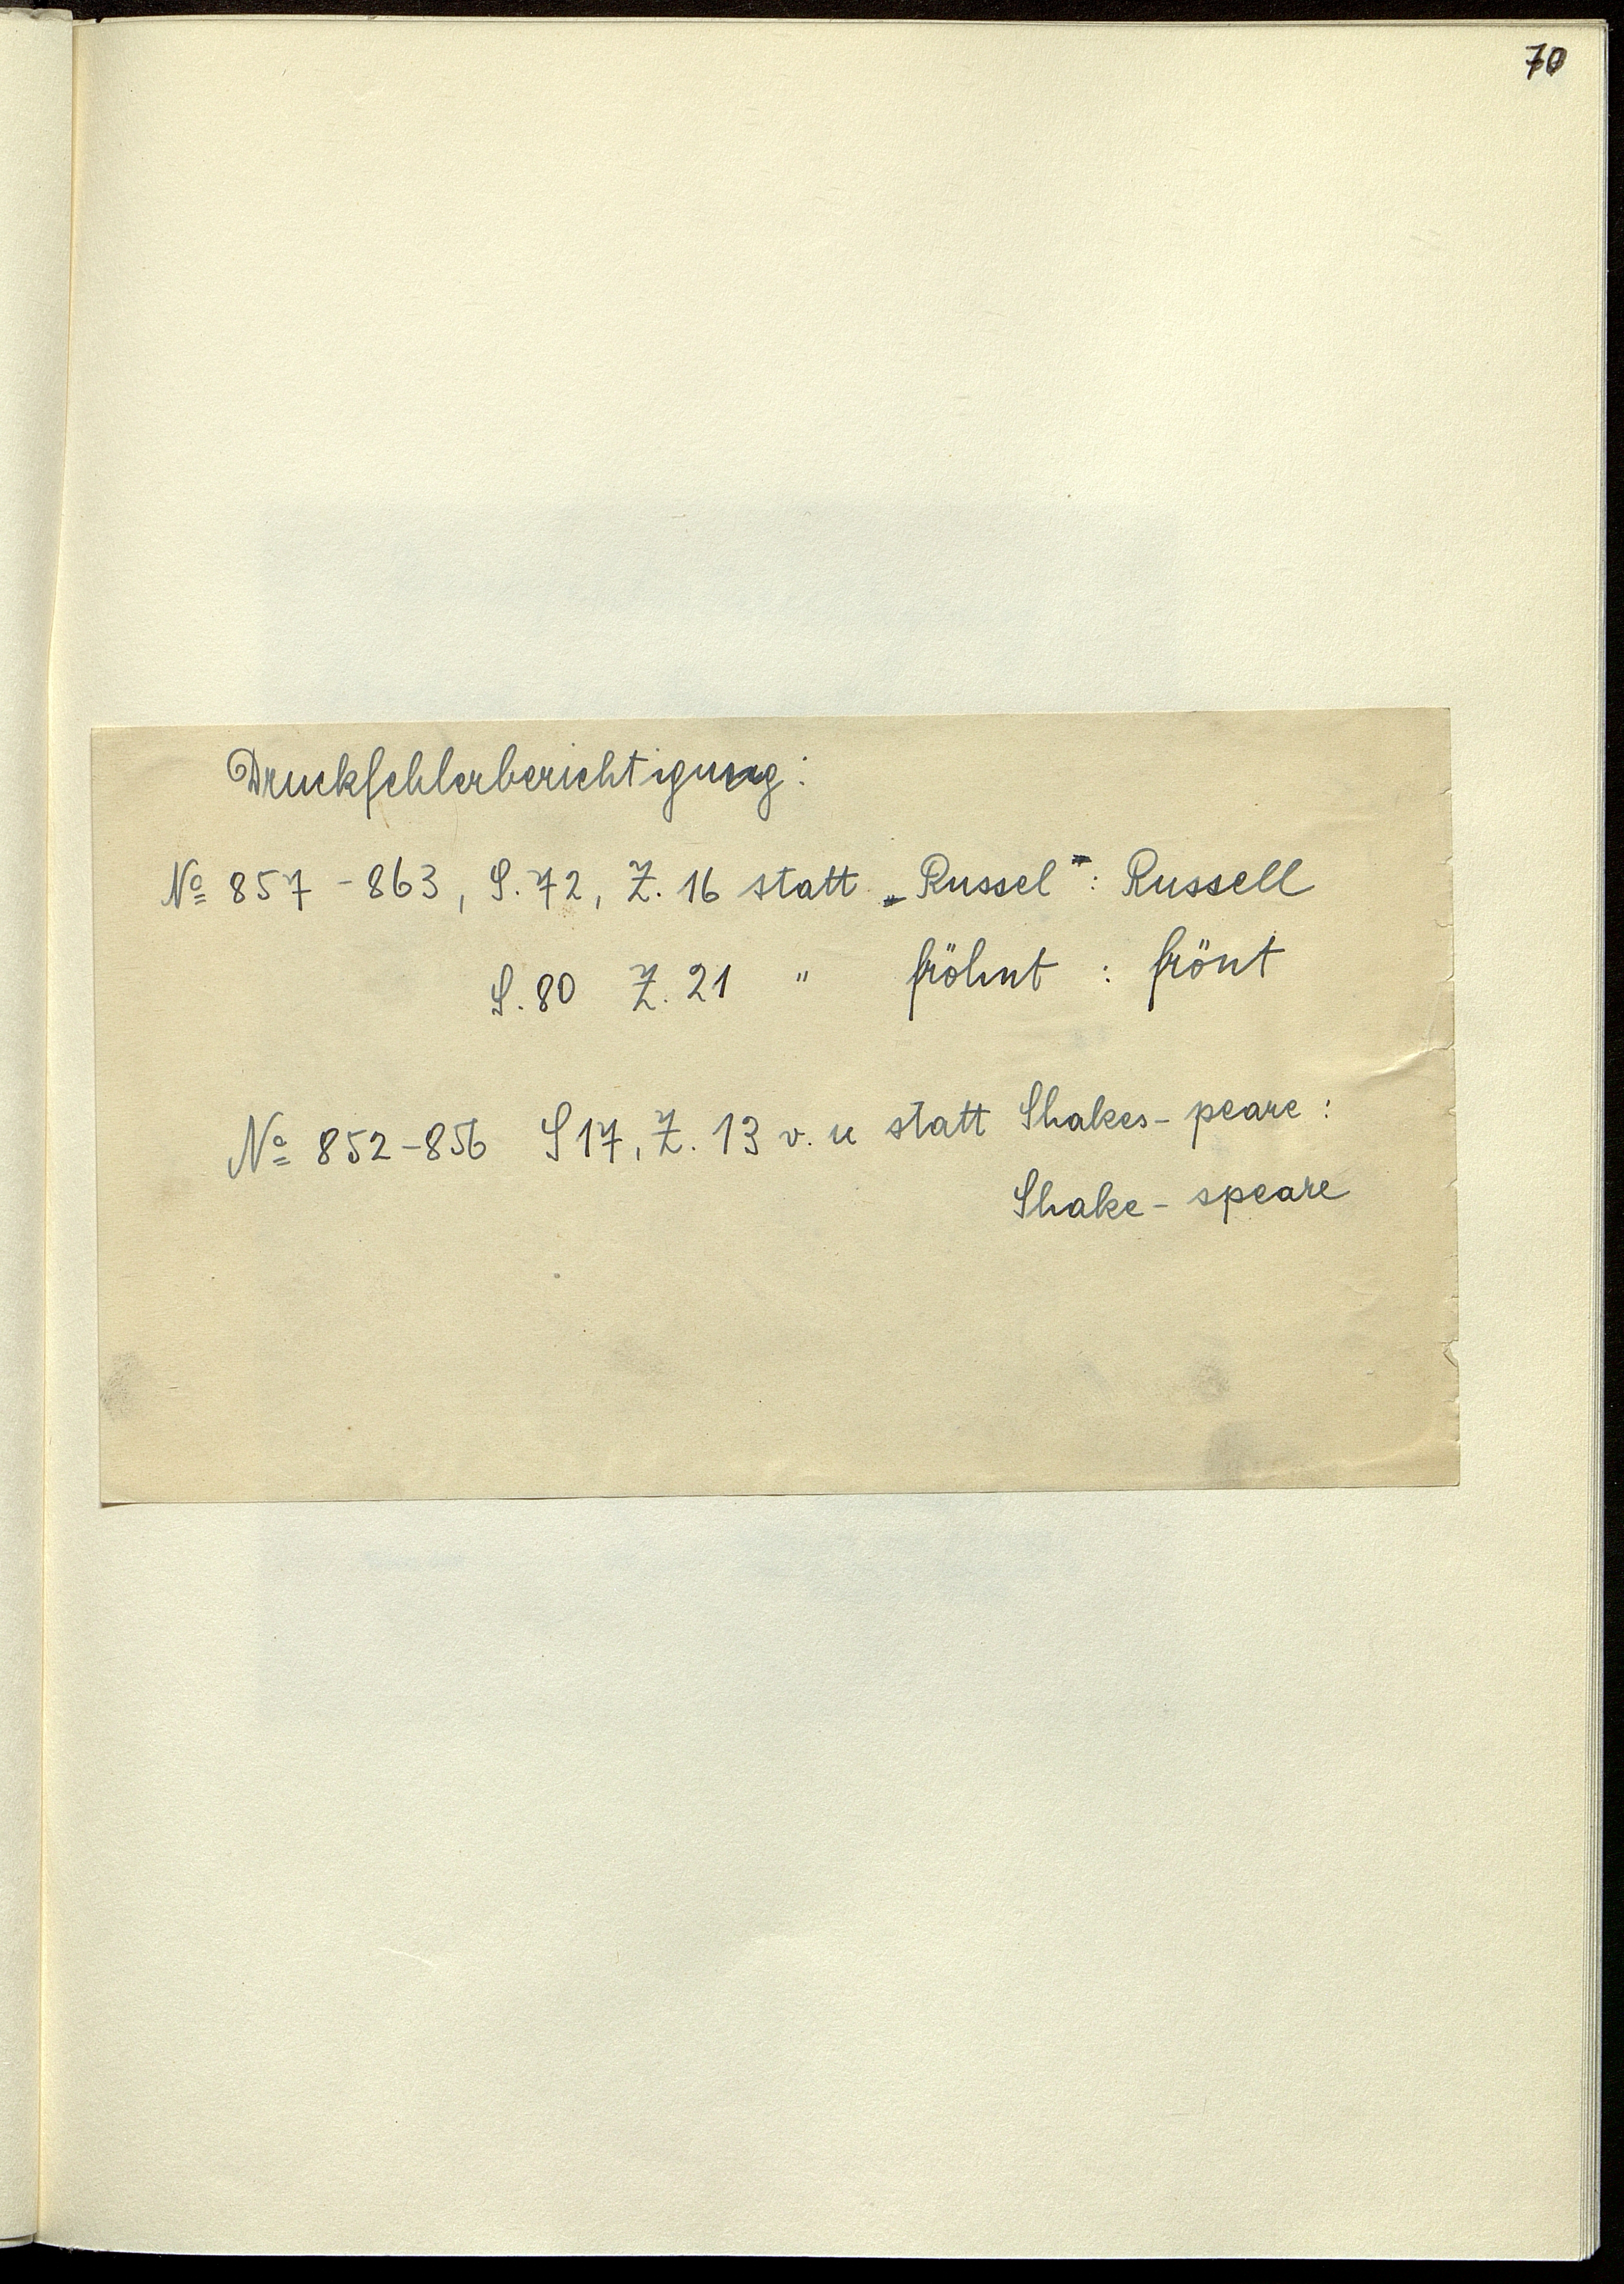 70
Druckfehlerberichtigung:
№ 857 - 863, S. 72, Z. 16 statt „Russel“: Russell
S. 80 Z. 21 " fröhnt : frönt
№ 852-856 S 17, Z. 13 v. u statt Shakes- peare:
Shake- speare